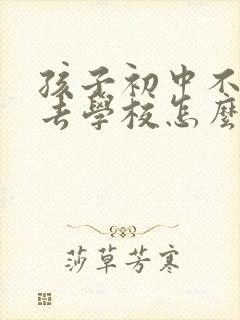 孩子初中不
去學校怎麼
莎草芳寒